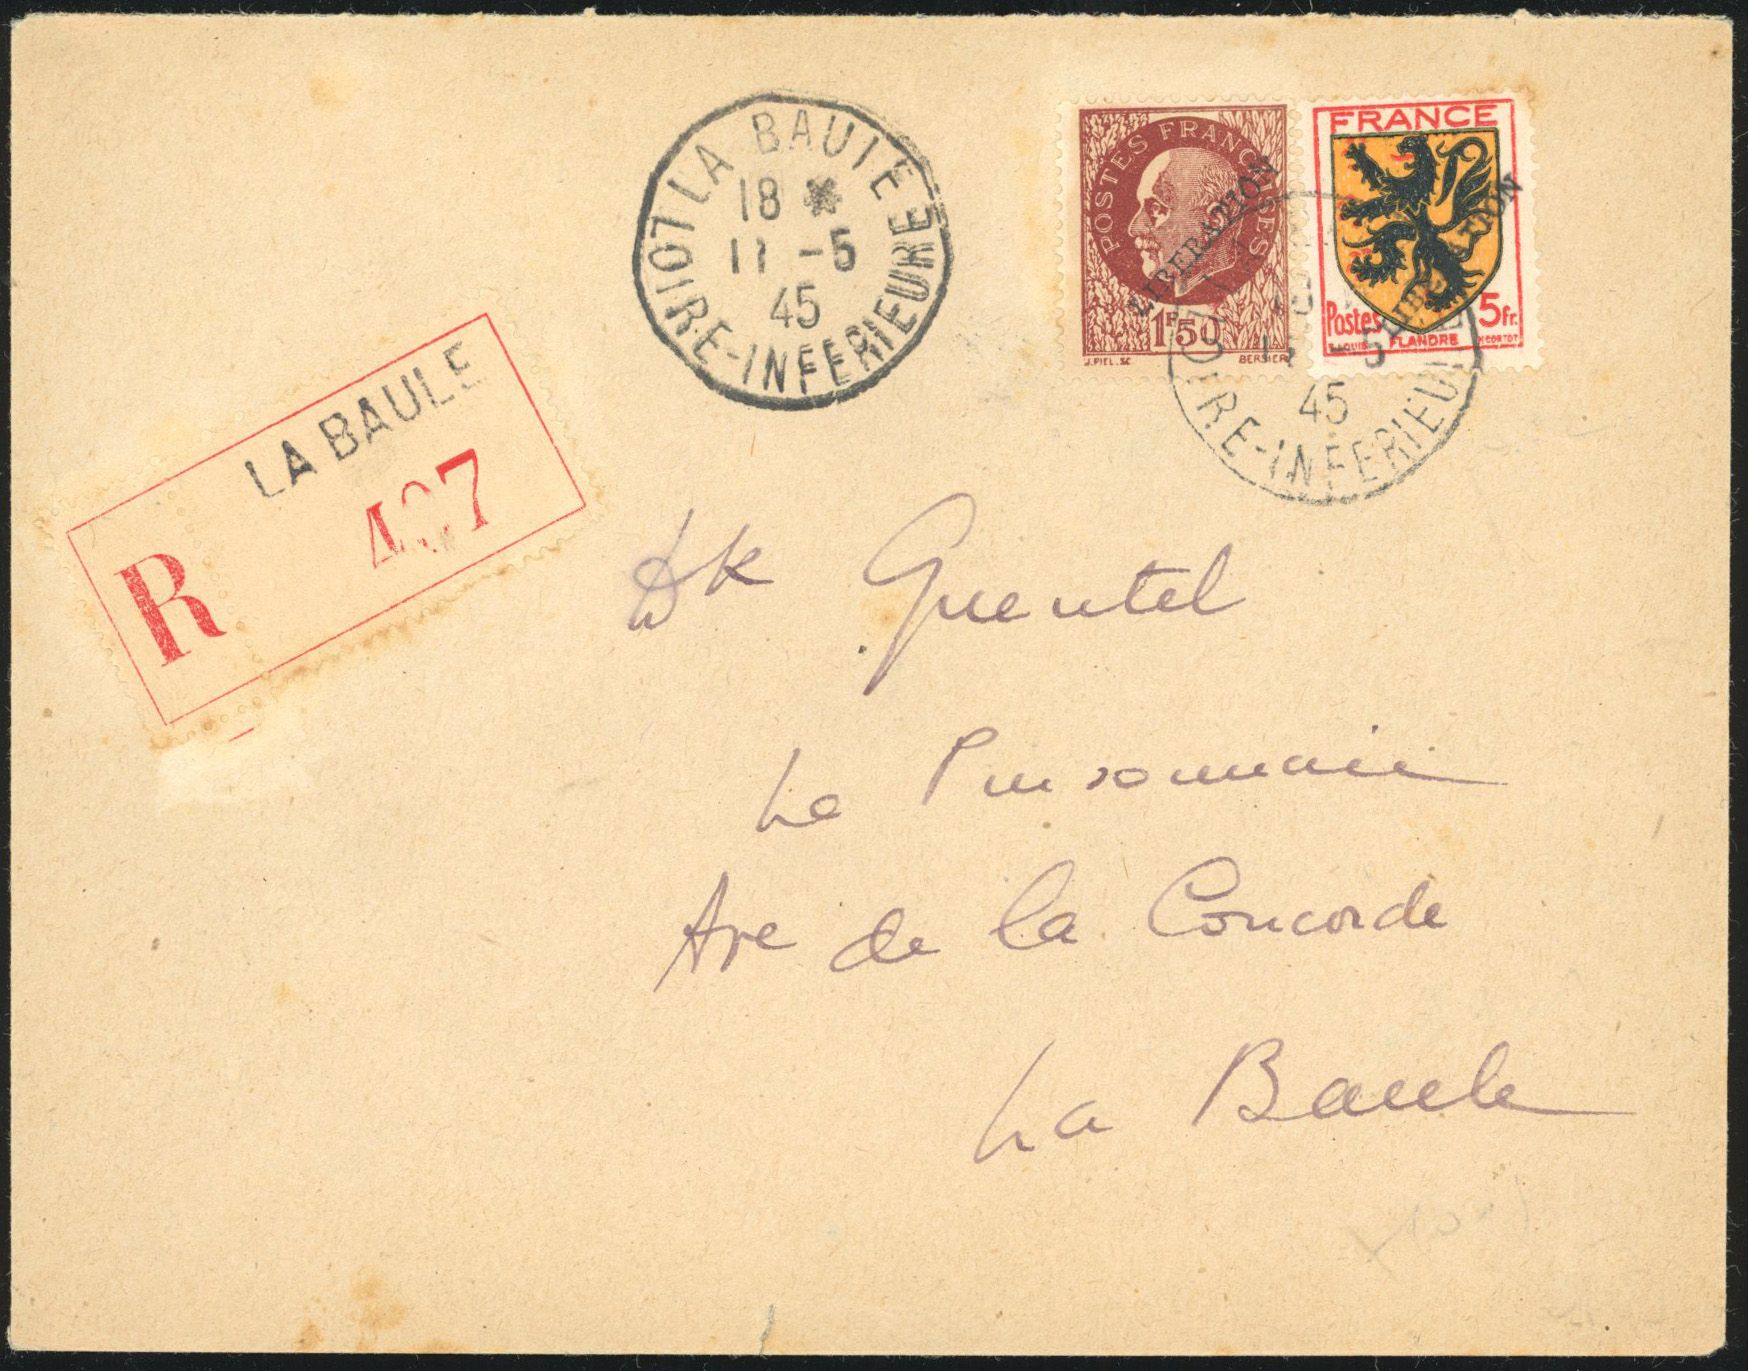 107 LA BAULE
18 *
11 -5
45
LOIRE-INFERIEURE
POSTES FRANÇAISES
LIBERATION
1F50
J.PIEL.SC
BERSIER
FRANCE
LIBERATION
Postes 5fr.
FLANDRE
H CORTOT
-5
45
LOIRE-INFERIEURE
LA BAULE
R 407
Quentel
La
Ave de la Concorde
La Baule